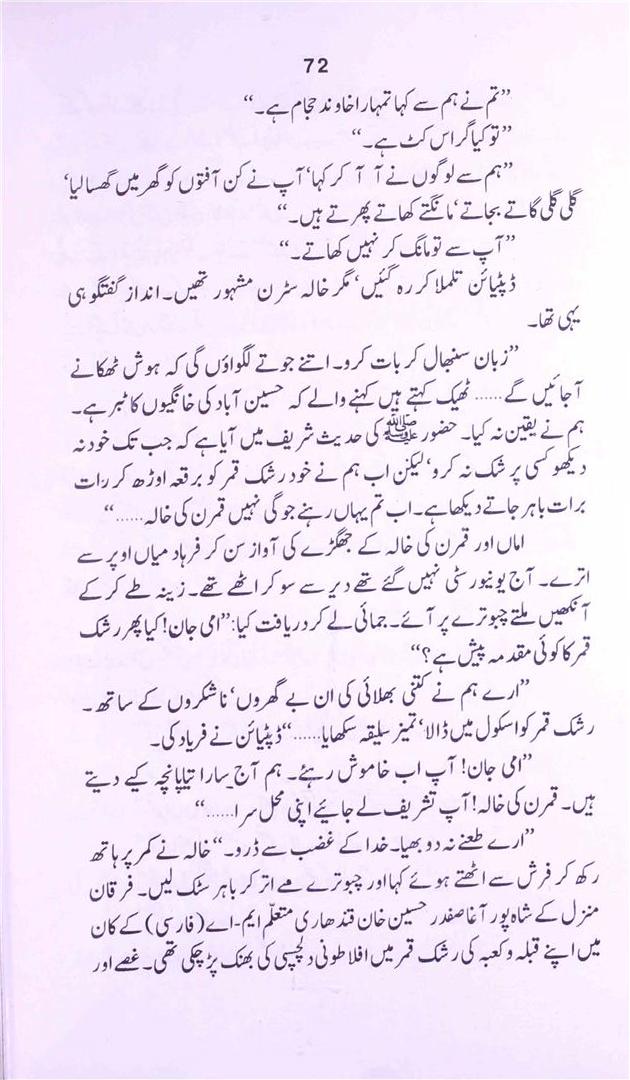 72
”تم نے ہم سے کہا تمہارا خاوند حجام ہے۔“
”تو کیا گراس کٹ ہے۔“
”ہم سے لوگوں نے آ آ کر کہا‘ آپ نے کن آفتوں کو گھر میں گھسا لیا‘
گلی گلی گاتے بجاتے‘ مانگتے کھاتے پھرتے ہیں۔“
”آپ سے تو مانگ کر نہیں کھاتے۔“
ڈپٹیائن تلملا کر رہ گئیں‘ مگر خالہ سڑن مشہور تھیں۔ انداز گفتگو ہی
یہی تھا۔
”زبان سنبھال کر بات کرو۔ اتنے جوتے لگواؤں گی کہ ہوش ٹھکانے
آ جائیں گے...... ٹھیک کہتے ہیں کہنے والے کہ حسین آباد کی خانگیوں کا ٹبر ہے۔
ہم نے یقین نہ کیا۔ حضور ﷺ کی حدیث شریف میں آیا ہے کہ جب تک خود نہ
دیکھو کسی پر شک نہ کرو‘ لیکن اب ہم نے خود رشک قمر کو برقعہ اوڑھ کر رات
برات باہر جاتے دیکھا ہے۔ اب تم یہاں رہنے جوگی نہیں قمرن کی خالہ......“
اماں اور قمرن کی خالہ کے جھگڑے کی آواز سن کر فرہاد میاں اوپر سے
اترے۔ آج یونیورسٹی نہیں گئے تھے دیر سے سو کر اٹھے تھے۔ زینہ طے کر کے
آنکھیں ملتے چبوترے پر آئے۔ جمائی لے کر دریافت کیا: ”امی جان! کیا پھر رشک
قمر کا کوئی مقدمہ پیش ہے؟“
”ارے ہم نے کتنی بھلائی کی ان بے گھروں‘ ناشکروں کے ساتھ۔
رشک قمر کو اسکول میں ڈالا‘ تمیز سلیقہ سکھایا......“ ڈپٹیائن نے فریاد کی۔
”امی جان! آپ اب خاموش رہئے۔ ہم آج سارا تیاپانچہ کیے دیتے
ہیں۔ قمرن کی خالہ! آپ تشریف لے جائیے اپنی محل سرا......“
”ارے طعنے نہ دو بھیا۔ خدا کے غضب سے ڈرو۔“ خالہ نے کمر پر ہاتھ
رکھ کر فرش سے اٹھتے ہوئے کہا اور چبوترے سے اتر کر باہر سٹک لیں۔ فرقان
منزل کے شاہ پور آغا صفدر حسین خان قندھاری متعلّم ایم-اے (فارسی) کے کان
میں اپنے قبلہ و کعبہ کی رشک قمر میں افلاطونی دلچسپی کی بھنک پڑ چکی تھی۔ غصے اور